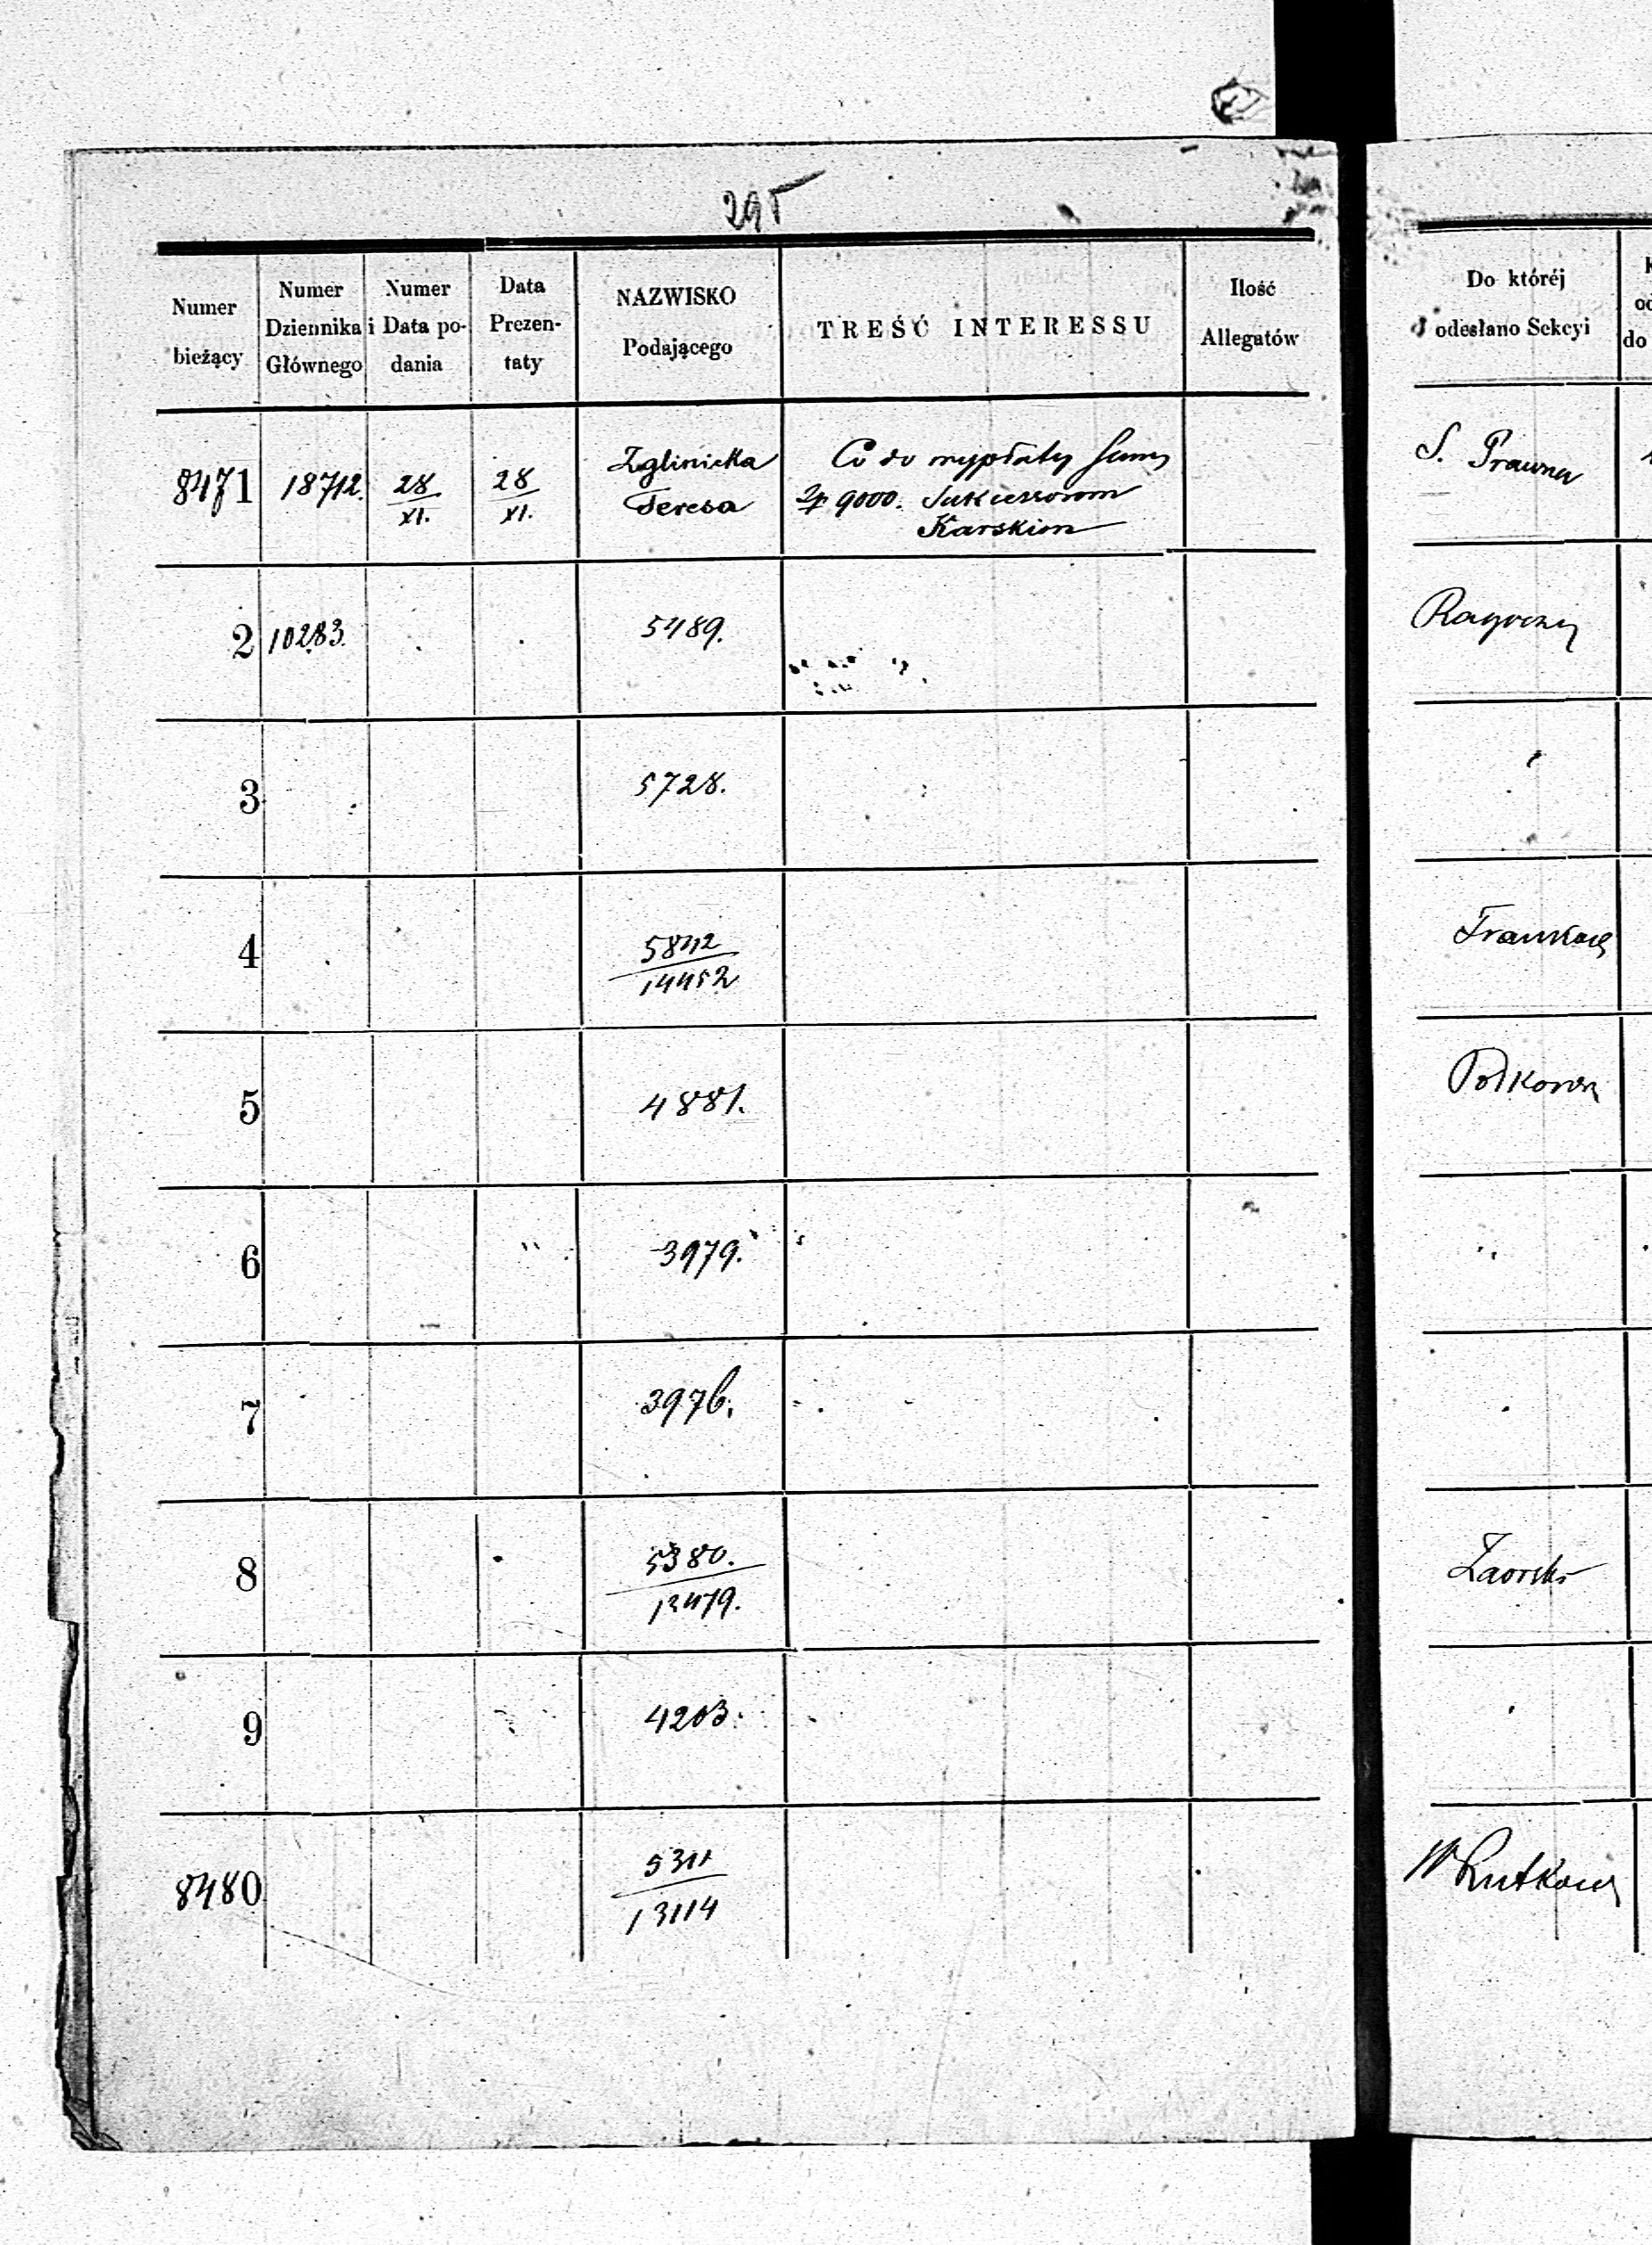 295
Numer bieżący
Numer Dziennika Głównego
Numer i Data podania
Data Prezentaty
NAZWISKO Podającego
TREŚĆ INTERESSU
Ilość Allegatów
Do któréj odesłano Sekcyi
8471 18712. 28/XI. 28/XI. Zglinicka Co do wypłaty Summy S. Prawna
Teresa Zł 9000. Sukcessorom
Karskim
2 10283. 5489.
3 5728.
4 5842/14452
5 4881.
6 3979.
7 3976.
8 5380./13479. Zaorski
9 4203.
8480 5311/13114